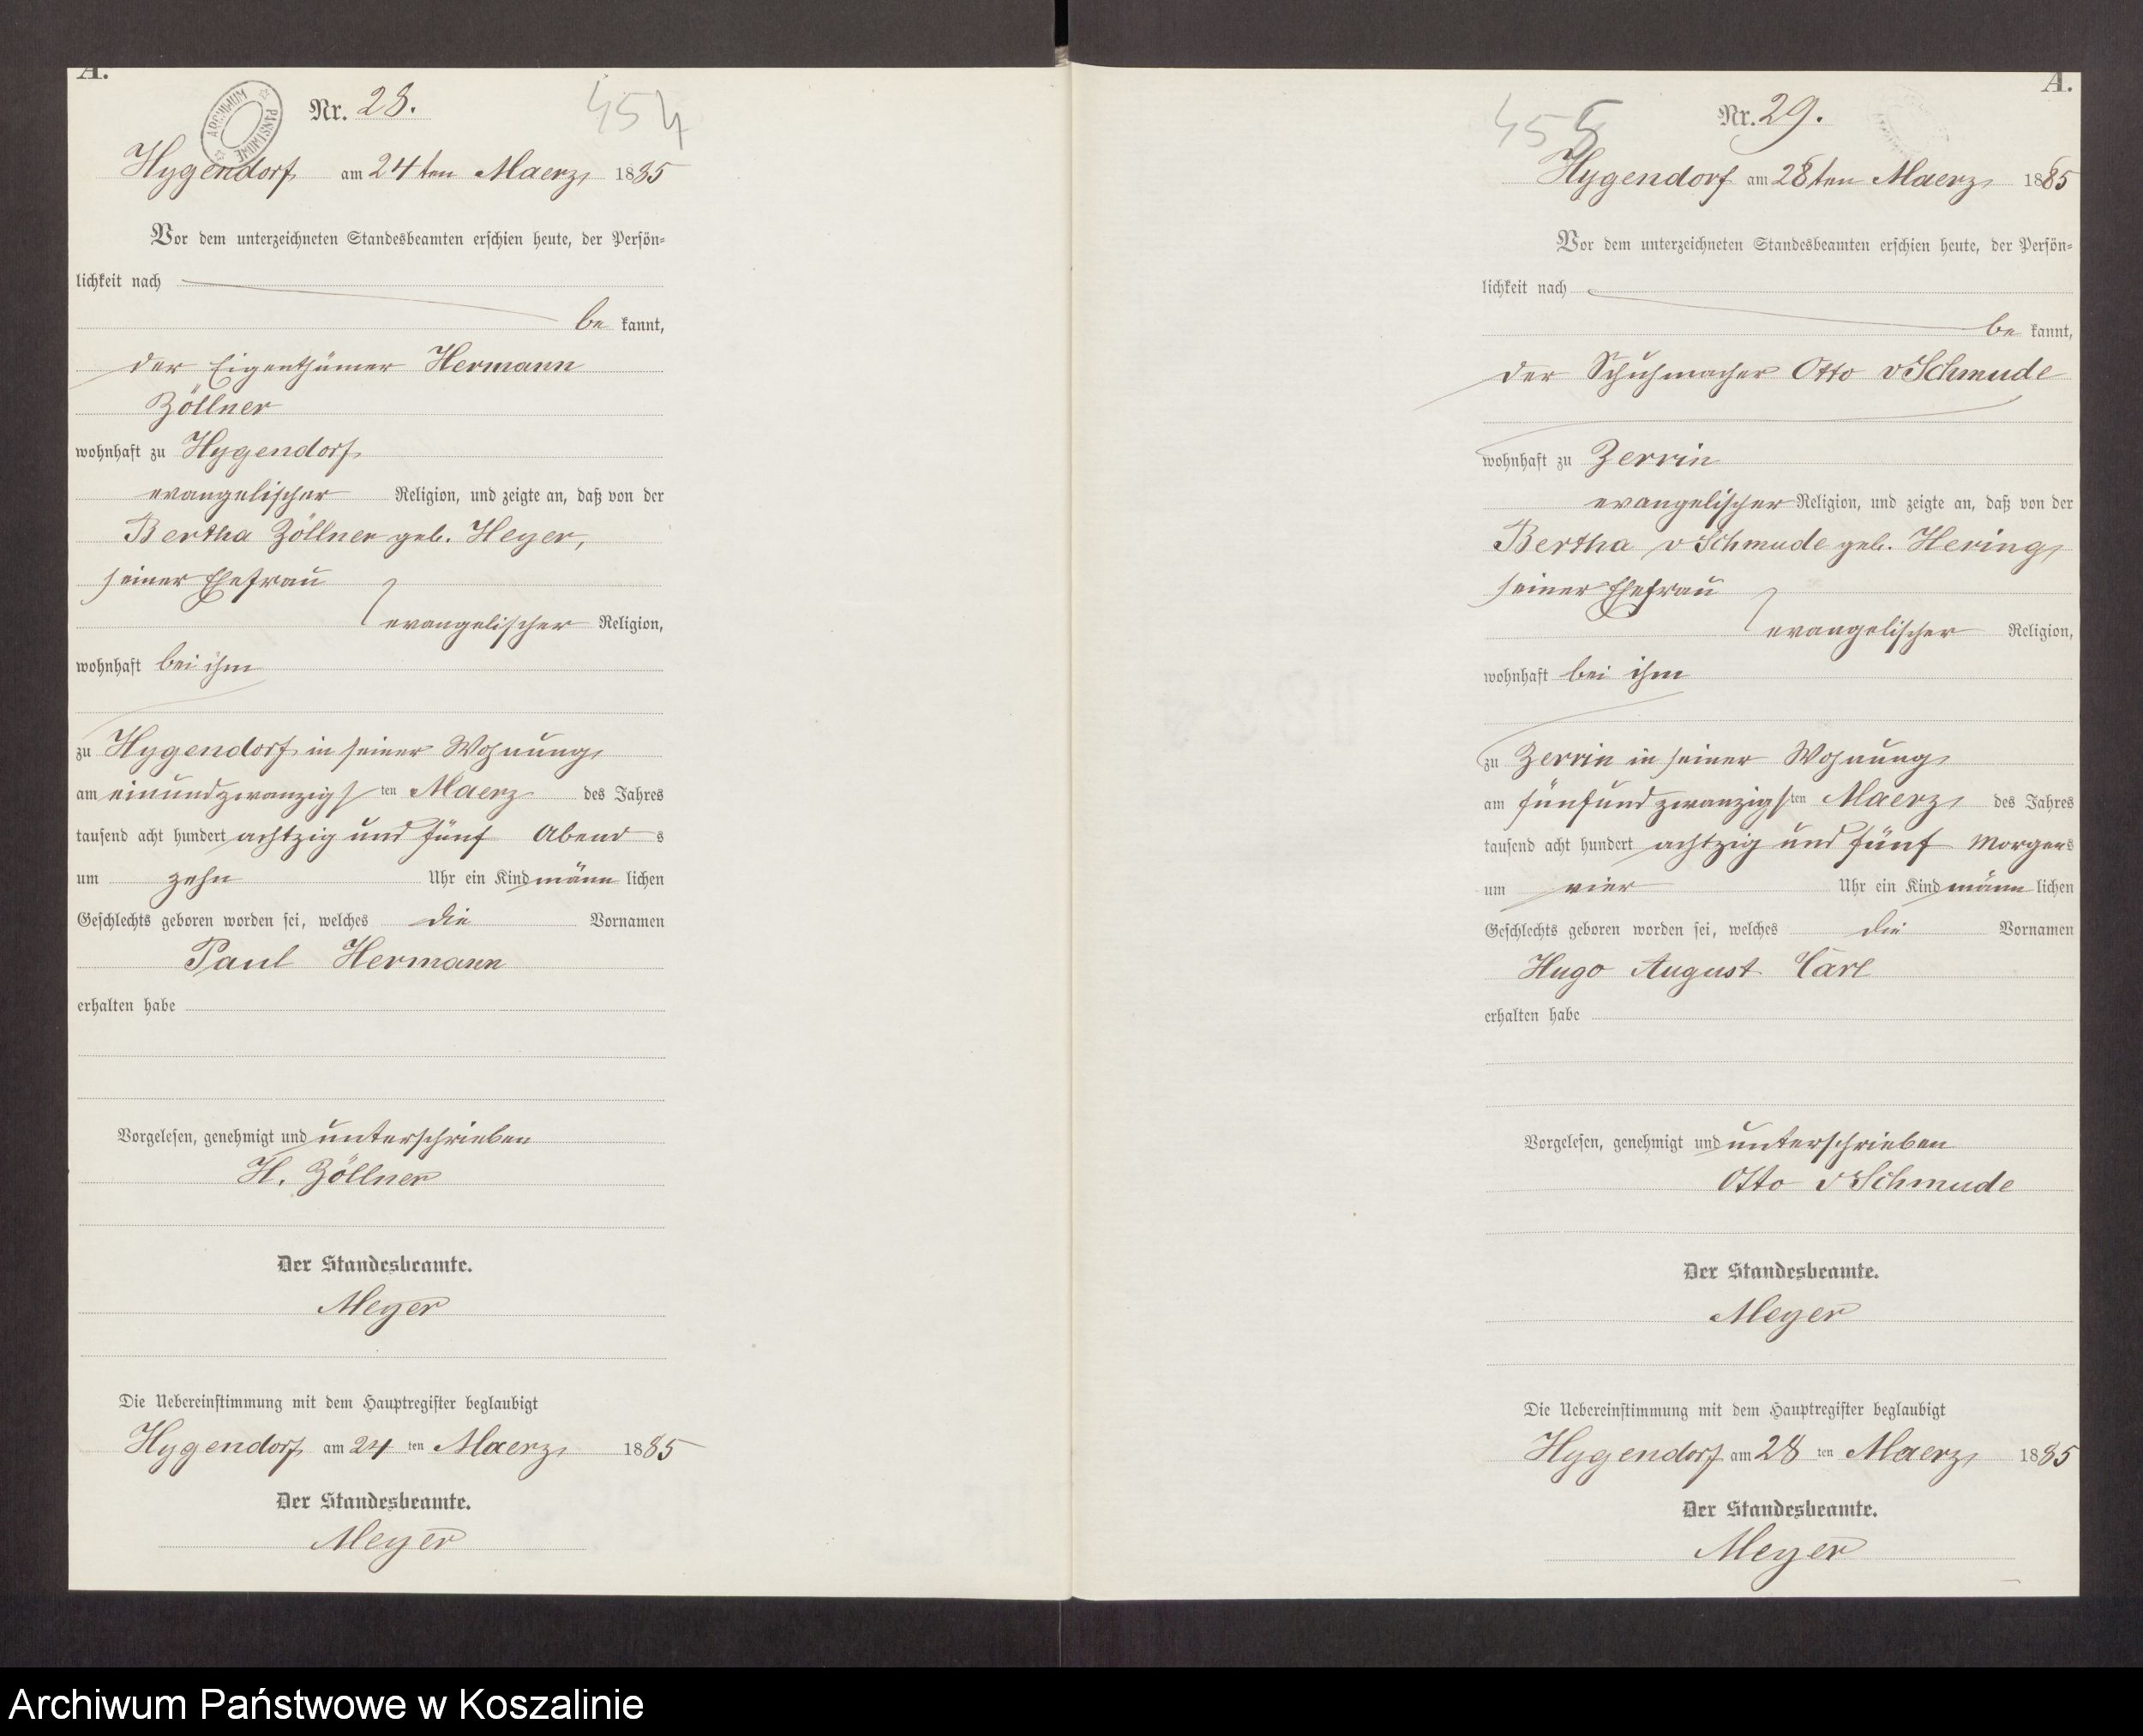 A.
ARCHIWUM PAŃSTWOWE
Nr. 28.
454
Hygendorf am 24ten Maerz 1885
Vor dem unterzeichneten Standesbeamten erschien heute, der Persön-
lichkeit nach
be kannt,
der Eigenthümer Hermann
Zöllner
wohnhaft zu Hygendorf
evangelischer Religion, und zeigte an, daß von der
Bertha Zöllner geb. Heyer,
seiner Ehefrau
evangelischer Religion,
wohnhaft bei ihm
zu Hygendorf in seiner Wohnung
am einundzwanzigs ten Maerz des Jahres
tausend acht hundert achtzig und fünf Abend s
um zehn Uhr ein Kind männ lichen
Geschlechts geboren worden sei, welches die Vornamen
Paul Hermann
erhalten habe
Vorgelesen, genehmigt und unterschrieben
H. Zöllner
Der Standesbeamte.
Meyer
Die Uebereinstimmung mit dem Hauptregister beglaubigt
Hygendorf am 24 ten Maerz 1885
Der Standesbeamte.
Meyer
A.
455
Nr. 29.
Hygendorf am 28ten Maerz 1885
Vor dem unterzeichneten Standesbeamten erschien heute, der Persön-
lichkeit nach
be kannt,
der Schuhmacher Otto v Schmude
wohnhaft zu Zerrin
evangelischer Religion, und zeigte an, daß von der
Bertha v Schmude geb. Hering,
seiner Ehefrau
evangelischer Religion,
wohnhaft bei ihm
zu Zerrin in seiner Wohnung
am fünfundzwanzigs ten Maerz des Jahres
tausend acht hundert achtzig und fünf Morgens
um vier Uhr ein Kind männ lichen
Geschlechts geboren worden sei, welches die Vornamen
Hugo August Carl
erhalten habe
Vorgelesen, genehmigt und unterschrieben
Otto v Schmude
Der Standesbeamte.
Meyer
Die Uebereinstimmung mit dem Hauptregister beglaubigt
Hygendorf am 28 ten Maerz 1885
Der Standesbeamte.
Meyer
Archiwum Państwowe w Koszalinie